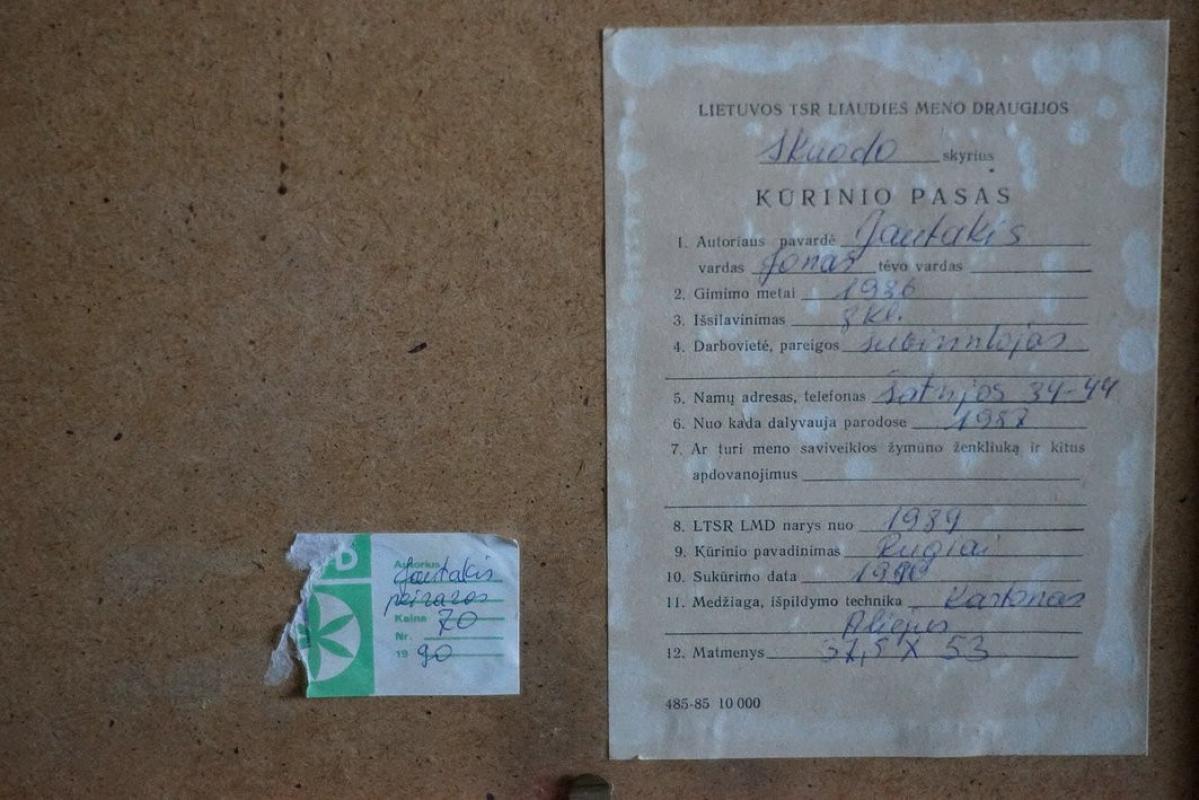 LIETUVOS TSR LIAUDIES MENO DRAUGIJOS
Skuodo skyrius
KŪRINIO PASAS
1. Autoriaus pavardė Jautakis
vardas Jonas tėvo vardas
2. Gimimo metai 1936
3. Išsilavinimas 8 kl.
4. Darbovietė, pareigos
5. Namų adresas, telefonas Šatrijos 34-44
6. Nuo kada dalyvauja parodose 1987
7. Ar turi meno saviveiklos žymūno ženkliuką ir kitus
apdovanojimus
8. LTSR LMD narys nuo 1989
9. Kūrinio pavadinimas Rugiai
10. Sukūrimo data 1990
11. Medžiaga, išpildymo technika Kartonas
Aliejus
12. Matmenys 37,5 X 53
485-85 10 000
D
Autorius Jautakis
peizažas
Kaina 70
Nr.
19 90